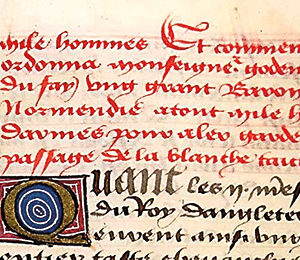 mile hommes Et commen
ordonna monseigneʳ gode
du fay ung grant Baron
Normendie atout mile h
darmes pour aler garde
passage de la blanche tac
Quant les ij. mes
du Roy dangleter
eurent ainsi